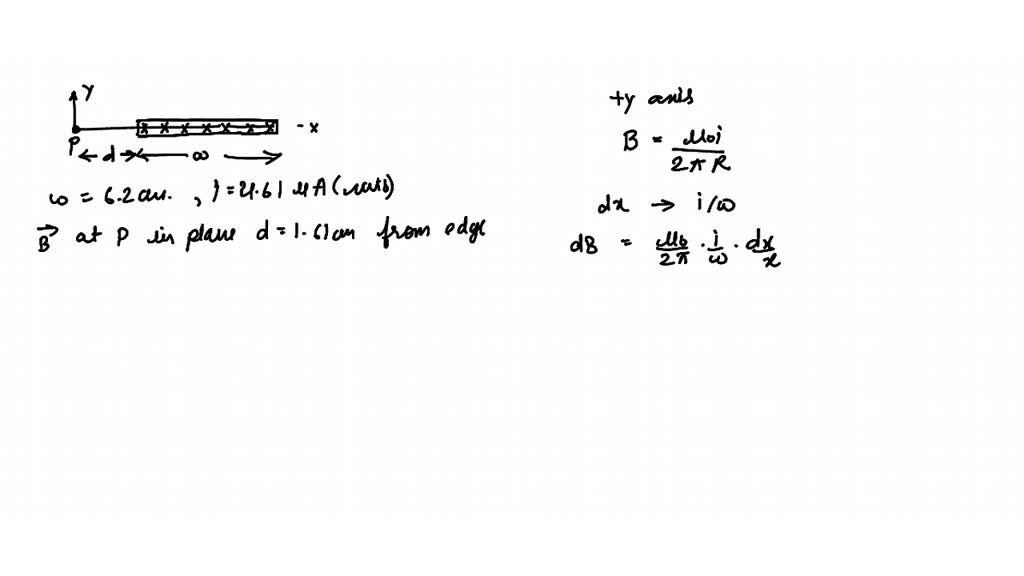 Y
x x x x x x x - x
P
d w
w = 6.2 cm. , i = 4.61 μA
B⃗ at P in plane d = 1.61 cm from edge
+y axis
B = μ₀i / 2πR
dx → i/w
dB = μ₀/2π · i/w · dx/x